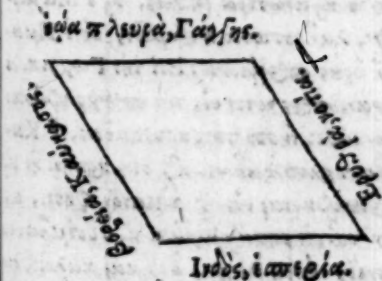 ἑῴα πλευρὰ, Γάγγης.
βορεία, Καύκασος.
Ερυθρὰ, νοτία.
Ινδὸς, ἑσπερία.